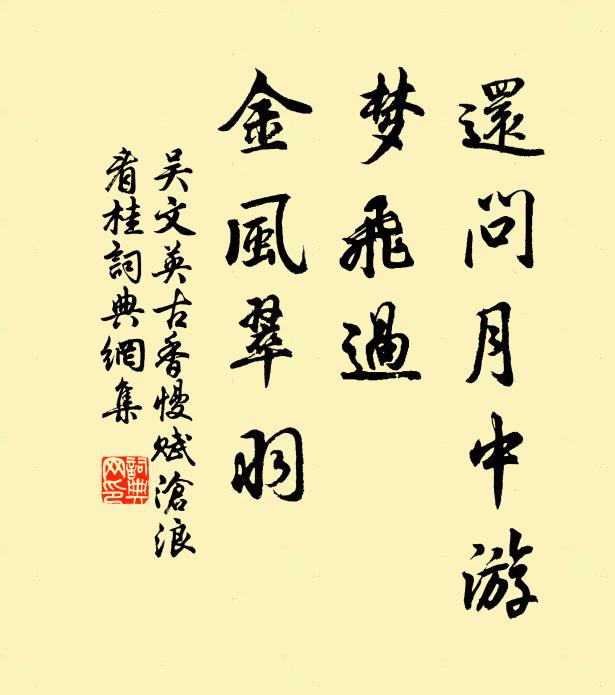 還問月中游
梦飛過
金風翠羽
吴文英古香慢赋滄浪
看桂詞典網集
詞典
网印